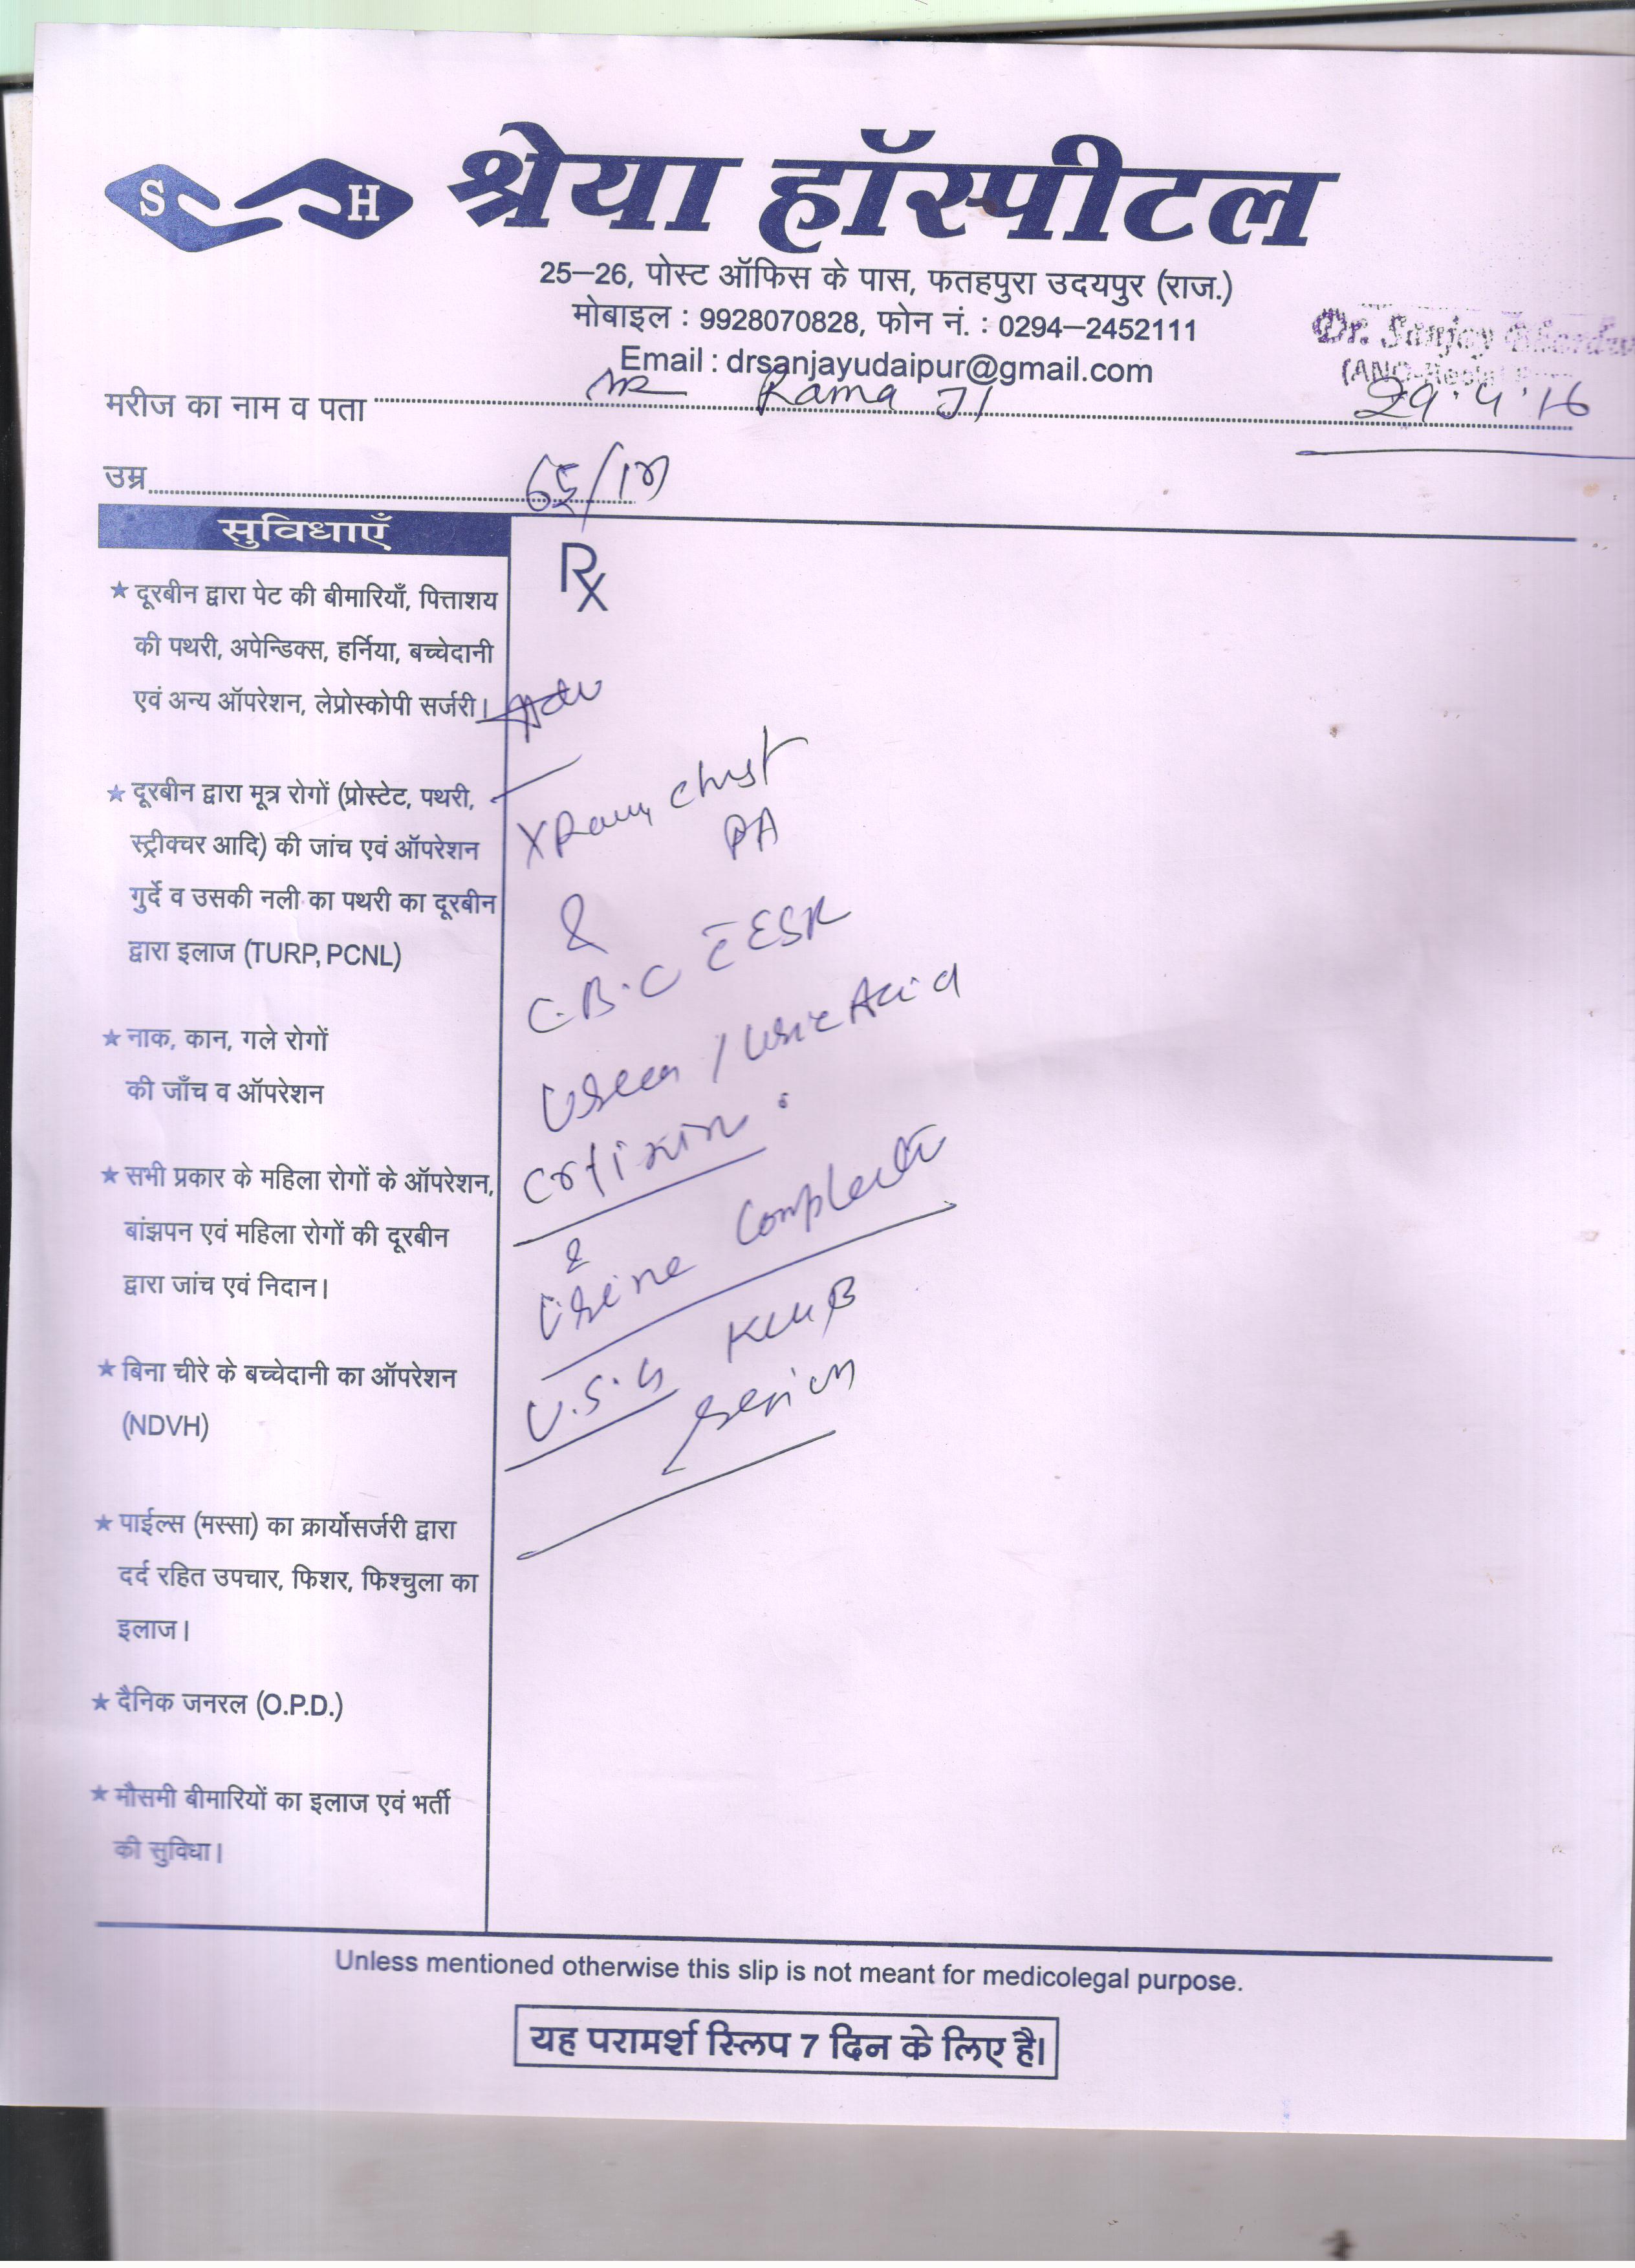 S H श्रेया हॉस्पीटल
25–26, पोस्ट ऑफिस के पास, फतहपुरा उदयपुर (राज.)
मोबाइल : 9928070828, फोन नं. : 0294–2452111
Email : drsanjayudaipur@gmail.com
Dr. Sanjay
मरीज का नाम व पता Rama Ji 29.4.16
उम्र
सुविधाएँ
★ दूरबीन द्वारा पेट की बीमारियाँ, पित्ताशय
की पथरी, अपेन्डिक्स, हर्निया, बच्चेदानी
एवं अन्य ऑपरेशन, लेप्रोस्कोपी सर्जरी।
★ दूरबीन द्वारा मूत्र रोगों (प्रोस्टेट, पथरी,
स्ट्रीक्चर आदि) की जांच एवं ऑपरेशन
गुर्दे व उसकी नली का पथरी का दूरबीन
द्वारा इलाज (TURP, PCNL)
★ नाक, कान, गले रोगों
की जाँच व ऑपरेशन
★ सभी प्रकार के महिला रोगों के ऑपरेशन,
बांझपन एवं महिला रोगों की दूरबीन
द्वारा जांच एवं निदान।
★ बिना चीरे के बच्चेदानी का ऑपरेशन
(NDVH)
★ पाईल्स (मस्सा) का क्रार्योसर्जरी द्वारा
दर्द रहित उपचार, फिशर, फिश्चुला का
इलाज।
★ दैनिक जनरल (O.P.D.)
★ मौसमी बीमारियों का इलाज एवं भर्ती
की सुविधा।
Rx
Adv
X Ray chest
PA
&
C.B.C c̄ ESR
Urea / Uric Acid
&
Urine Complete
U.S.G KUB
Unless mentioned otherwise this slip is not meant for medicolegal purpose.
यह परामर्श स्लिप 7 दिन के लिए है।